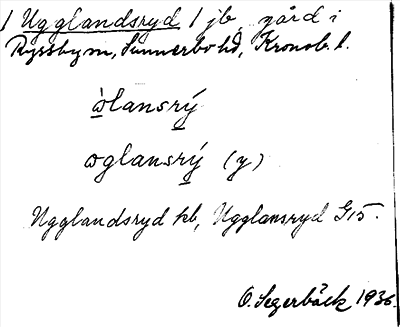 1 Ugglandsryd 1 jb, gård i
Ryssby sn, Sunnerbo hd, Kronob. l.
ɷ̀lansrý
ɷglansrý (y)
Ugglandsryd kb, Ugglansryd G15.
O. Segerbäck 1936.